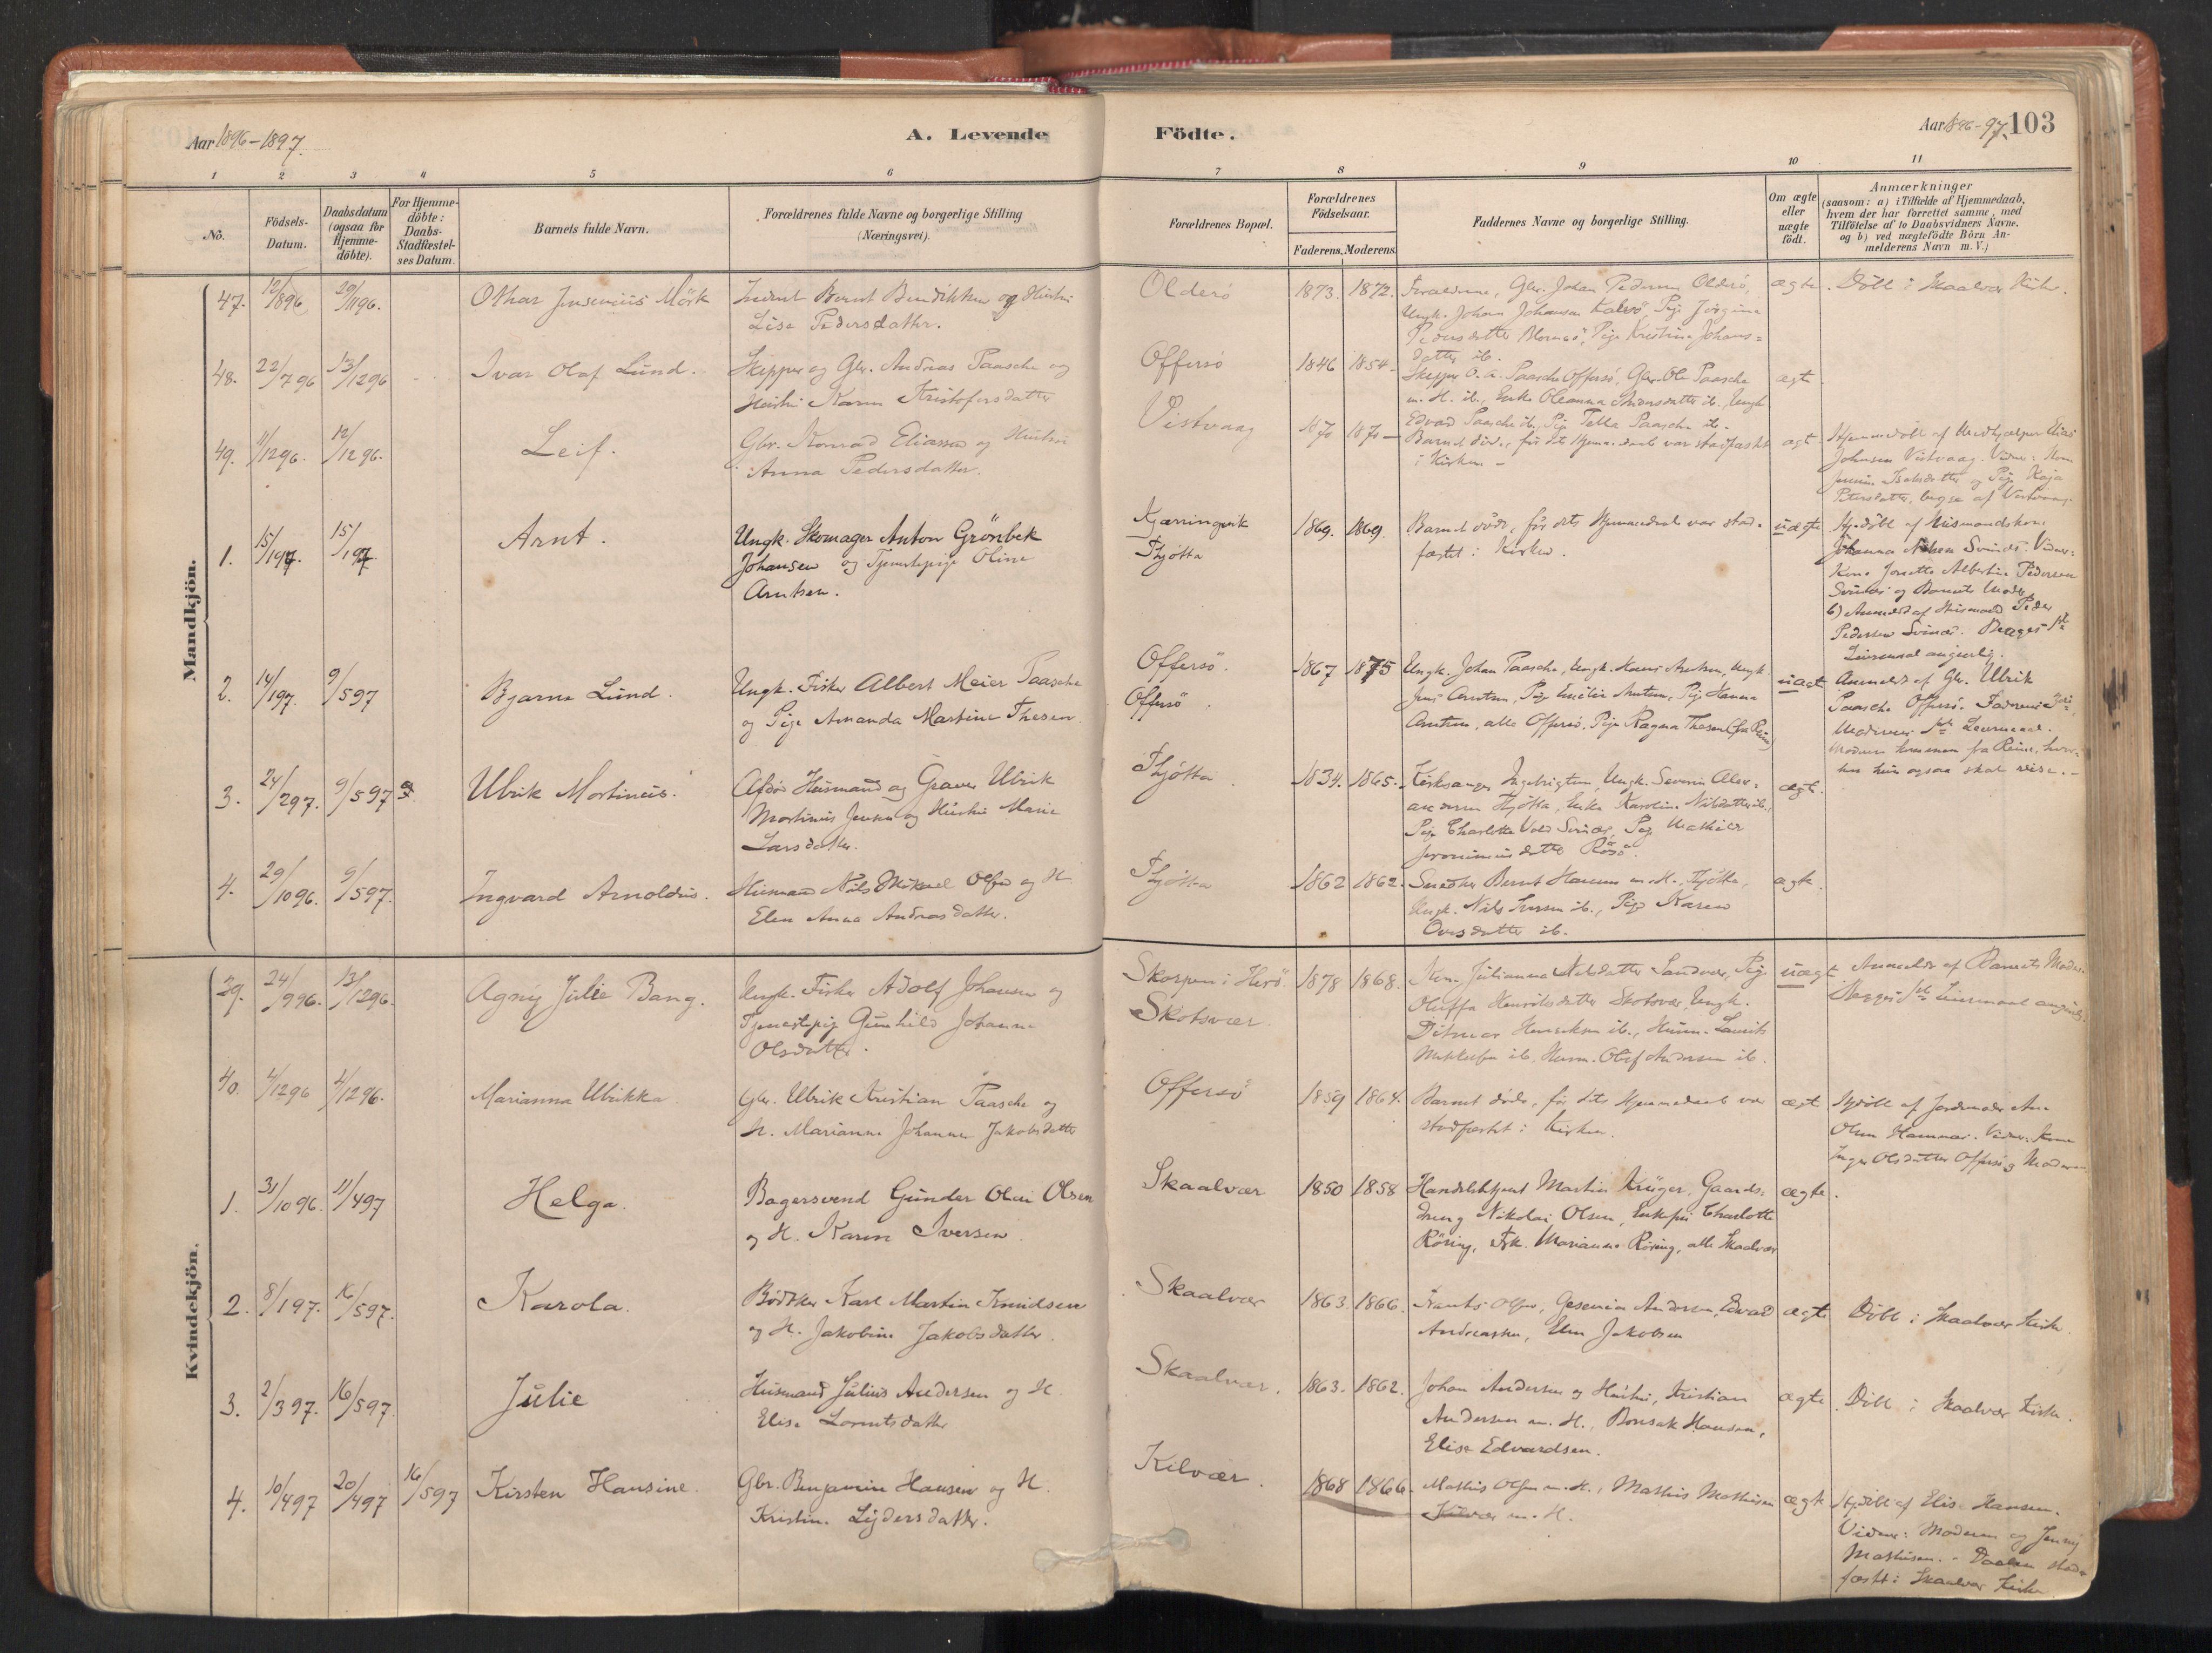 Aar 1896-1897.
A. Levende
Födte.
Aar 1896-97. 103
1 2 3 4 5 6 7 8 9 10 11
No.
Födsels-Datum.
Daabsdatum (ogsaa for Hjemme-döbte).
For Hjemme-döbte: Daabs-Stadfæstel-ses Datum.
Barnets fulde Navn.
Forældrenes fulde Navne og borgerlige Stilling
(Næringsvei).
Forældrenes Bopæl.
Forældrenes Födselsaar.
Faderens. Moderens.
Faddernes Navne og borgerlige Stilling.
Om ægte eller uægte födt.
Anmærkninger
(saasom: a) i Tilfælde af Hjemmedaab, hvem der har forrettet samme, med Tilföielse af to Daabsvidners Navne, og b) ved uægtefödte Börn An-melderens Navn m. V.)
Mandkjön.
47. 12/896 29/1196. Othar Jensenius Mörk
Bernt Bendiktsen og Hustru
Lise Pedersdatter.
Olderö 1873. 1872. Forældrene, Gbr. Johan Pedersen Olderö,
Ungk. Johan Johansen, Pige Jörgine
Pedersdatter, Pige Kristine Johans=
datter ib.
ægte. Döbt i Skaalvær Kirke.
48. 22/796 13/1296 Ivar Olaf Lund.
Skipper og Gbr. Andreas Paasche og
Hustru Karen Kristofersdatter
Offersö 1846 1854 Skipper O. A. Paasche Offersö, Gbr. Ole Paasche
m. H. ib., Enke Oleanna ib., Ungk.
Edvard Paasche ib., Pige Paasche ib.
ægte
49. 11/1296. 12/1296. Leif.
Gbr. Konrad Eliassen og Hustru
Anna Pedersdatter.
Vistvaag 1870 1870 Barnet döde, för dets Hjemmedaab var stadfæstet
i Kirken
ægte Hjemmedöbt af Medhjælper Elias
Johnsen Vistvaag. Vidner: Kone
og Pige Kaja
Petersdatter, begge af Vistvaag
1. 15/197. 15/197 Arnt.
Ungk. Skomager Anton Grönbek
Johansen og Tjenestepige Oline
Arntsen.
Kjærringvik
Thjötta
1869. 1869. Barnet döde, för dets Hjemmedaab var stad-
fæstet i Kirken.
uægte Hj. döbt af Husmandskone
Johanna Svinæs. Vidner:
Kone Albertine Pedersen
Svinæs og Barnets Moder.
b) Anmeldt af Husmand Peder
Pedersen Svinæs. Begges 1ste
Leiermaal angivelig.
2. 14/197. 9/597 Bjarne Lund.
Ungk. Fisker Albert Meier Paasche
og Pige Amanda Martine Thesen
Offersö.
Offersö.
1867 1875 Ungk. Johan Paasche, Ungk. Hans Arntsen, Ungk.
Jens Arntsen, Pige Emilie Arntsen, Pige Hanna
Arntsen, alle Offersö. Pige Ragna Thesen
uægte Anmeldt af Gbr. Ulrik
Paasche Offersö.
Moderens 1ste Leiermaal.
Moderen kommen fra Reine, hvor-
hen hun ogsaa skal reise.
3. 24/297. 9/597 Ulrik Martinus.
Afdöd Husmand og Graver Ulrik
Martinus Jensen og Hustru Marie
Larsdatter.
Thjötta. 1834. 1865. Kirkesanger Ingebrigtsen, Ungk. Severin Alex-
andersen Thjötta, Enke Karoline Nilsdatter ib.,
Pige Charlotte Vold Svinæs, Pige Mathilde
Jeronimusdatter Rösö.
ægte.
4. 29/1096. 9/597. Ingvard Arnoldus.
Husmand Nils Mikael Olsen og H.
Elen Anna Andreasdatter.
Thjötta 1862 1862. Snedker Bernt Hansen m. H., Thjötta,
Ungk. Nils Iversen ib., Pige Karen
Ovesdatter ib.
ægte.
Kvindekjön.
39. 24/996. 13/1296. Agny Julie Bang.
Ungk. Fisker Adolf Johansen og
Tjenestepige Gunhild Johanna
Olsdatter.
Skorpen i Herö
Skotsvær
1878 1868. Kone Julianna Nilsdatter Sandvær, Pige
Oluffa Henriksdatter Skotsvær, Ungk.
Ditmar Henriksen ib., Husm. Laurits
ib., Husm. Olaf Andersen ib.
uægte Anmeldt af Barnets Moder.
Begges 1ste Leiermaal angivelig.
40. 4/1296 4/1296. Marianna Ulrikka
Gbr. Ulrik Kristian Paasche og
H. Marianna Johanna Jakobsdatter
Offersö 1859 1864. Barnet döde, för dets Hjemmedaab var
stadfæstet i Kirken.
ægte Hjdöbt af Jordemoder
Olsen. Vidner: Kone
Inger Olsdatter Offersö og Moderen
1. 31/1096. 11/497 Helga.
Bagersvend Gunder Olsen
og H. Karen Iversen.
Skaalvær 1850 1858 Handelsbetjent Martin Krüger, Gaards-
dreng Nikolai Olsen, Charlotte
Röring, Frk. Marianne Röring, alle Skaalvær
ægte.
2. 8/197. 16/597. Karola.
Bödtker Karl Martin Knudsen
og H. Jakobine Jakobsdatter.
Skaalvær 1863. 1866. Olsen, Gesenia Andersen, Edvard
Andreassen, Elen Jakobsen
ægte Döbt i Skaalvær Kirke.
3. 2/397. 16/597. Julie
Husmand Julius Andersen og H.
Elise Lorntsdatter
Skaalvær. 1863. 1862. Johan Andersen og Hustru, Kristian
Andersen m. H., Bonsak Hansen,
Elise Edvardsen.
ægte. Döbt i Skaalvær Kirke.
4. 10/497 20/497 16/597 Kirsten Hansine.
Gbr. Benjamin Hansen og H.
Kristine Lydersdatter.
Kilvær. 1868 1866. Mathis Olsen m. H., Mathis Mathisen
Kilvær m. H.
ægte Hjdöbt af Elise Hansen.
Vidner: Moderen og Jenny
Mathisen. - Daaben stad-
fæstet i Skaalvær Kirke